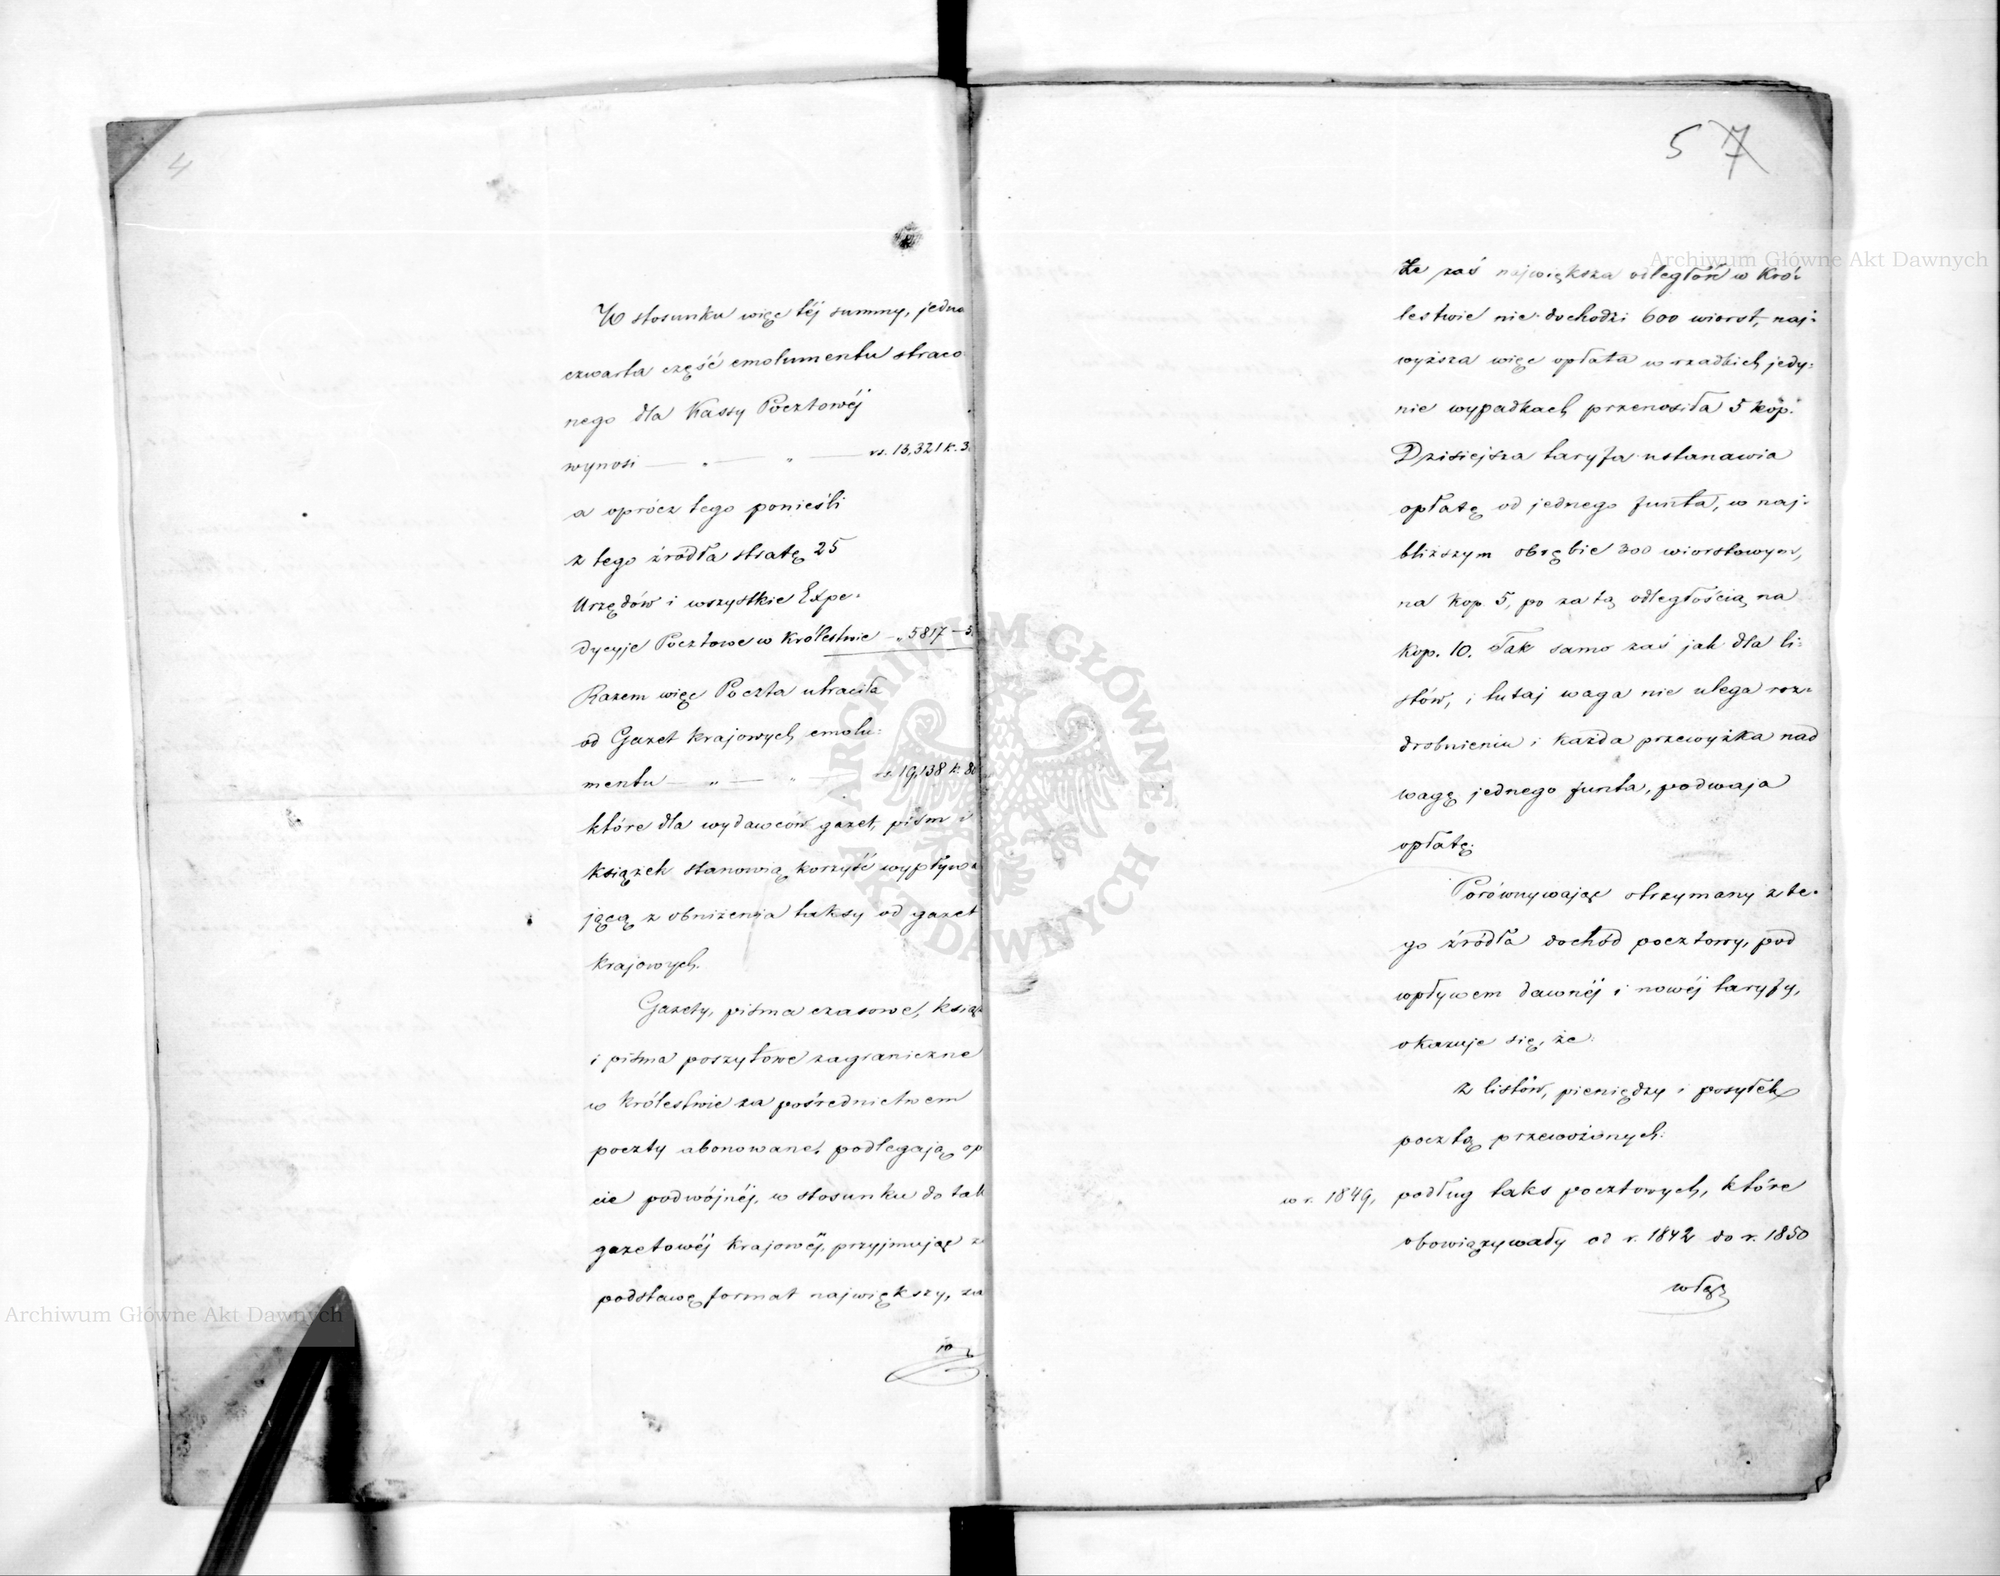 4
W stosunku więc téj summy, jedna
czwarta część emolumentu straco
nego dla Kassy Pocztowéj
wynosi — „ — „ — rs. 13,321 k. 3
a oprócz tego ponieśli
z tego źródła stratę 25
Urzędów i wszystkie Expe-
dycyje Pocztowe w Królestwie — „ 5817 — 5
Razem więc Poczta utraciła
od Gazet krajowych emolu-
mentu — „ — „ — rs. 19,138 k. 8
które dla wydawców gazet, pism i
książek stanowią korzyść wypływa
jącą z obniżenia taksy od gazet
krajowych.
Gazety, pisma czasowe, książ
i pisma poszytowe zagraniczne
w Królestwie za pośrednictwem
poczty abonowane, podlegają op
cie podwójnéj, w stosunku do tak
gazetowéj krajowéj, przyjmując z
podstawę format największy, za
5 7
Że zaś największa odległość w Kró-
lestwie nie dochodzi 600 wiorst, naj-
wyższa więc opłata w rzadkich jedy-
nie wypadkach przenosiła 5 kop.
Dzisiejsza taryfa ustanawia
opłatę od jednego funta, w naj-
bliższym obrębie 300 wiorstowym,
na kop. 5, po za tą odległością na
kop. 10. Tak samo zaś jak dla li-
stów, i tutaj waga nie ulega roz-
drobnieniu i każda przewyżka nad
wagę jednego funta, podwaja
opłatę.
Porównywając otrzymany z te-
go źródła dochód pocztowy, pod
wpływem dawnéj i nowéj taryfy,
okazuje się, że:
Z listów, pieniędzy i posyłek
pocztą przewożonych:
w r. 1849, podług taks pocztowych, które
obowiązywały od r. 1842 do r. 1850
włącz
Archiwum Główne Akt Dawnych
Archiwum Główne Akt Dawnych
ARCHIWUM GŁÓWNE AKT DAWNYCH